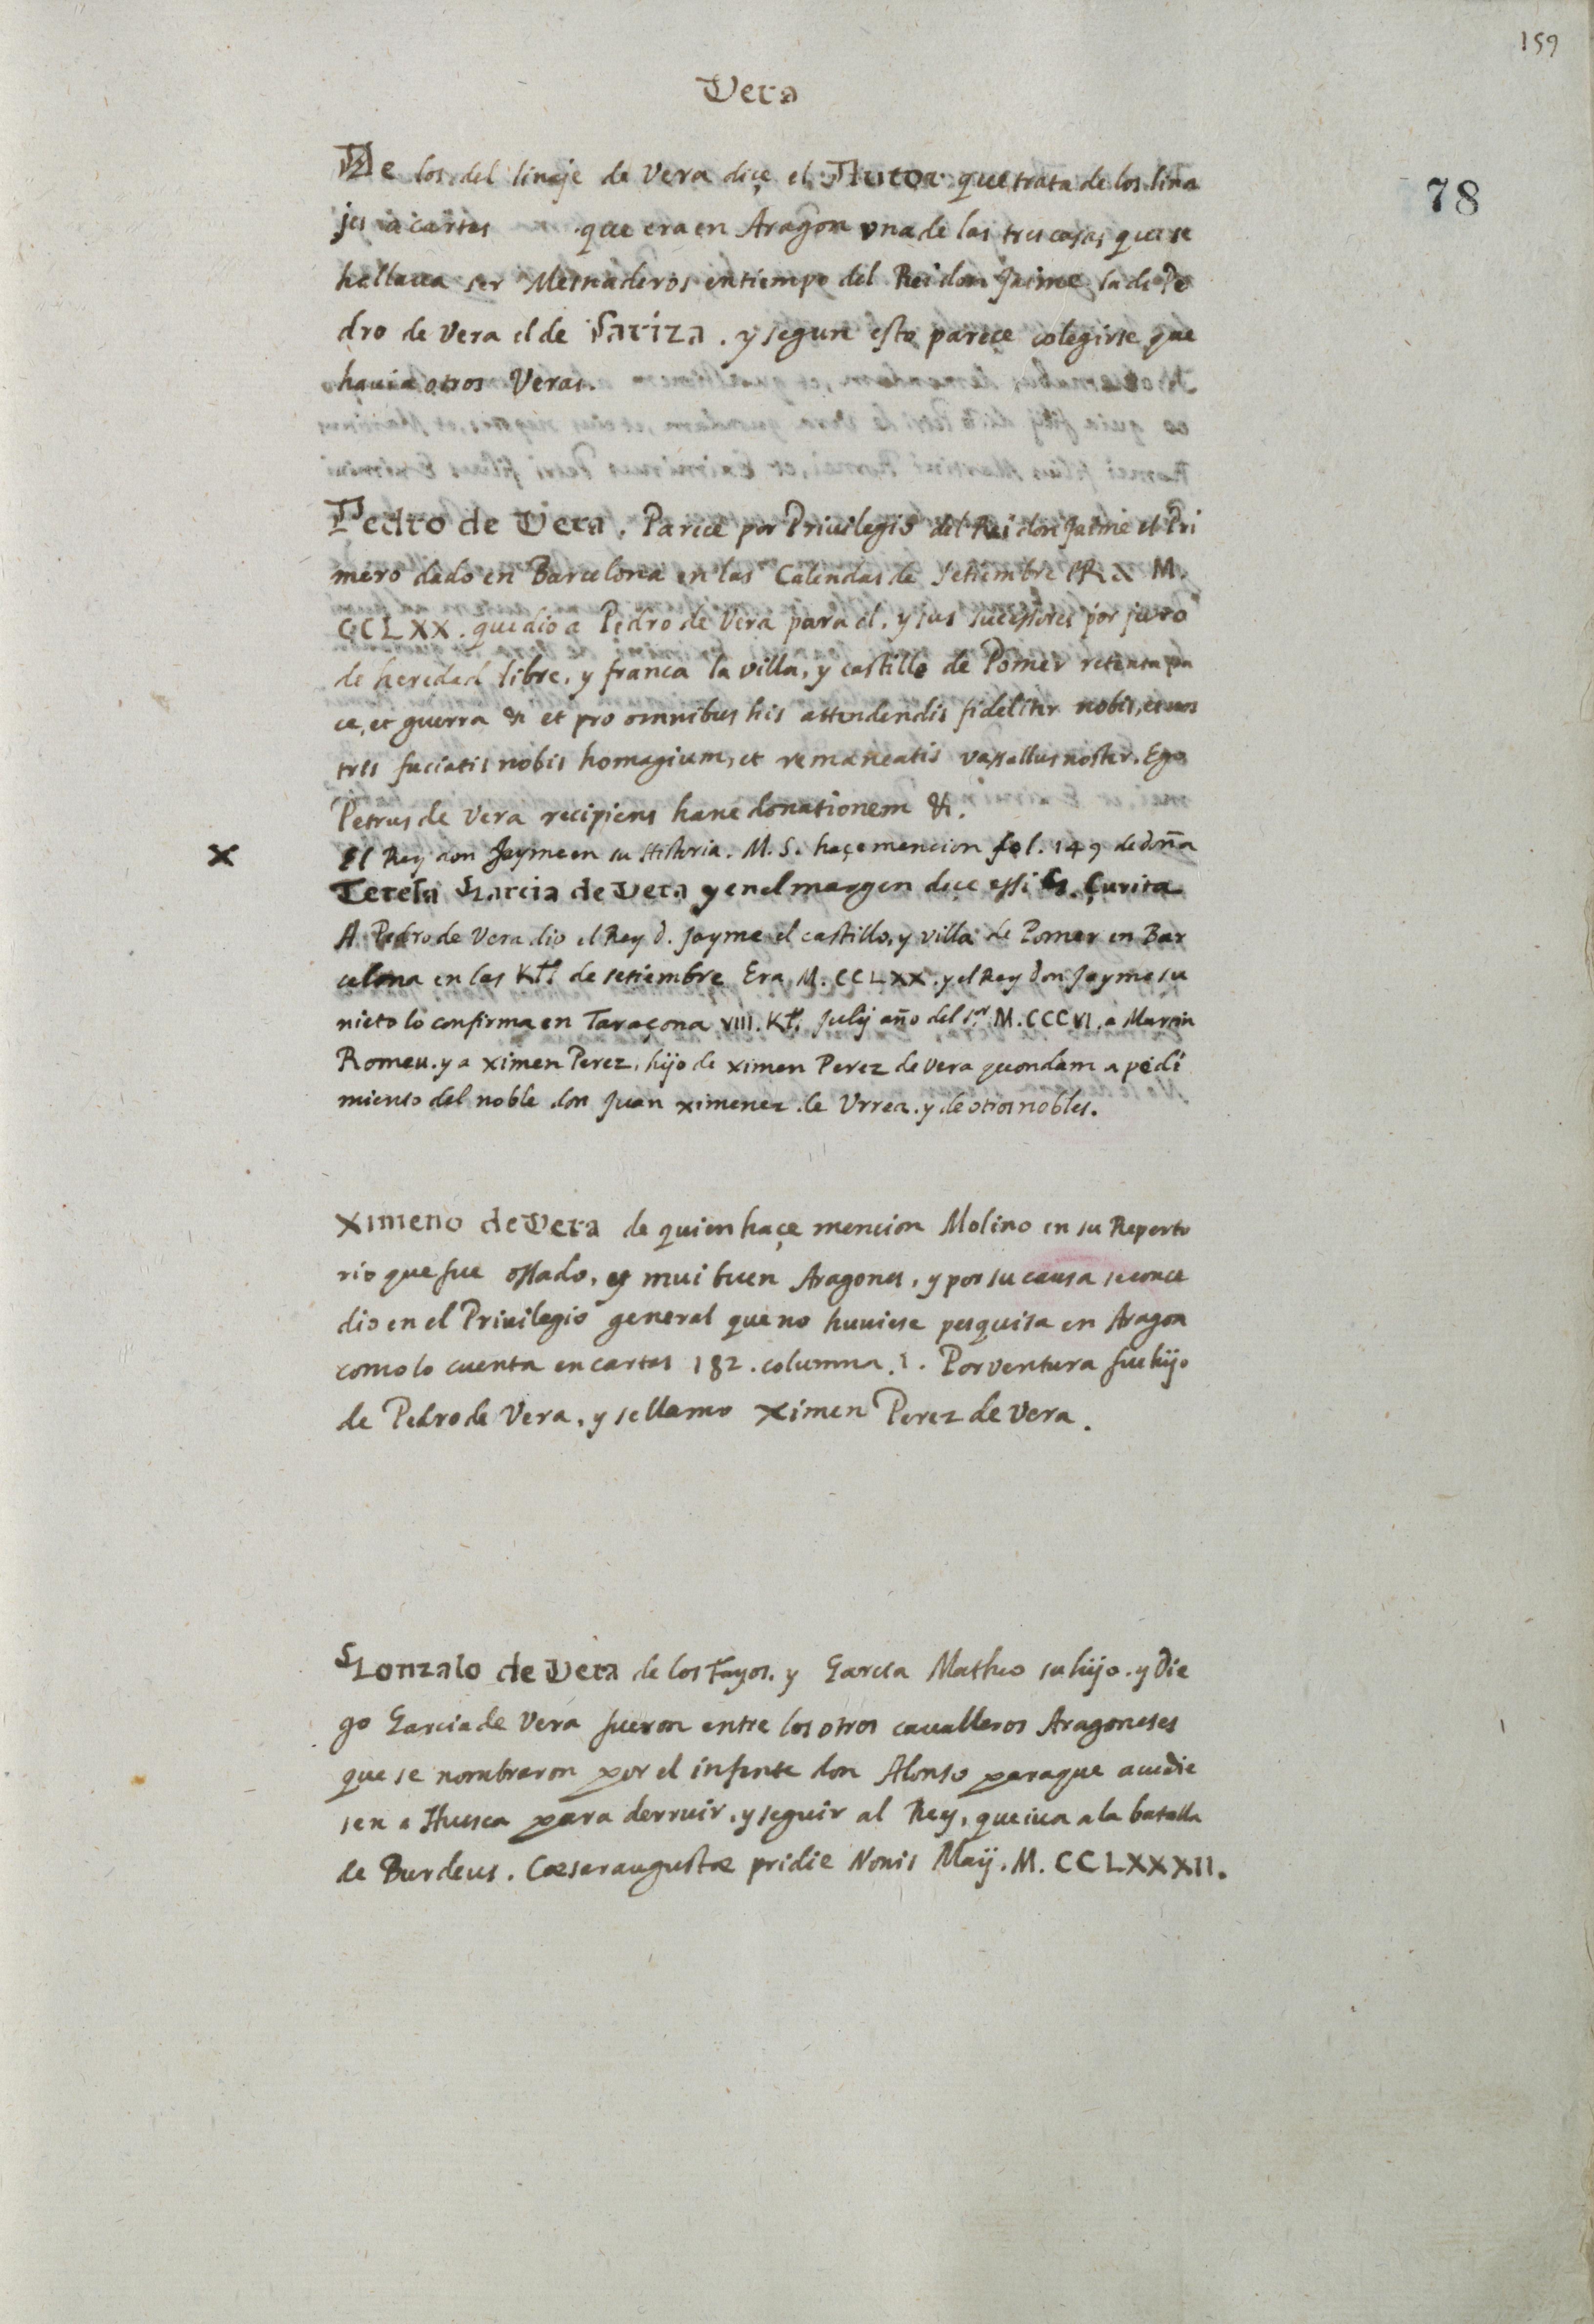 159
Vera
78
De los del linaje de Vera diçe el Autor que trata de los lina
jes a cartas que era en Aragon vna de las tres casas que se
hallaua ser Mesnaderos en tiempo del Rei don Jaime, la de Pe
dro de Vera el de Sariza. y segun esto parece colegirse que
hauia otros Veras.
Pedro de Vera. Parece por Priuilegio del Rei don Jaime el Pri
mero dado en Barcelona en las Calendas de Setiembre M.
CCLXX. que dio a Pedro de Vera para el, y sus sucessores por juro
de heredad libre, y franca la villa, y castillo de Pomer retenta pa
ce, et guerra &c et pro omnibus his attendendis fideliter nobis, et nos
tris faciatis nobis homagium, et remaneatis vassallus noster. Ego
Petrus de Vera recipiens hanc donationem &c.
x El Rey don Jayme en su Historia. M. S. haçe mencion fol. 149 de doña
Teresa Garcia de Vera y en el margen dice assi G. Çurita
A Pedro de Vera dio el Rey d. Jayme el castillo, y villa de Pomer en Bar
celona en las Kl. de setiembre Era M. CCLXX. y el Rey don Jayme su
nieto lo confirma en Taraçona VIII. Kl. Julij año del sr. M.CCCVI. a Martin
Romeu. y a ximen Perez, hijo de ximen Perez de vera quondam a pedi
miento del noble don Juan ximenez de Vrrea. y de otros nobles.
Ximeno de Vera de quien haçe mencion Molino en su Reperto
rio que fue ossado, et mui buen Aragones, y por su causa se conce
dio en el Priuilegio general que no huuiese pesquisa en Aragon
como lo cuenta en cartas 182. columna. 1. Por ventura fue hijo
de Pedro de Vera, y se llamo Ximen Perez de vera.
Gonzalo de Vera de los Fayos. y Garcia Matheo su hijo. y Die
go Garcia de Vera fueron entre los otros caualleros Aragoneses
que se nombraron por el infante don Alonso paraque acudie
sen a Huesca para derruir, y seguir al Rey, que iua a la batalla
de Burdeus. Cæsaraugustæ pridie Nonis Maij. M. CCLXXXII.